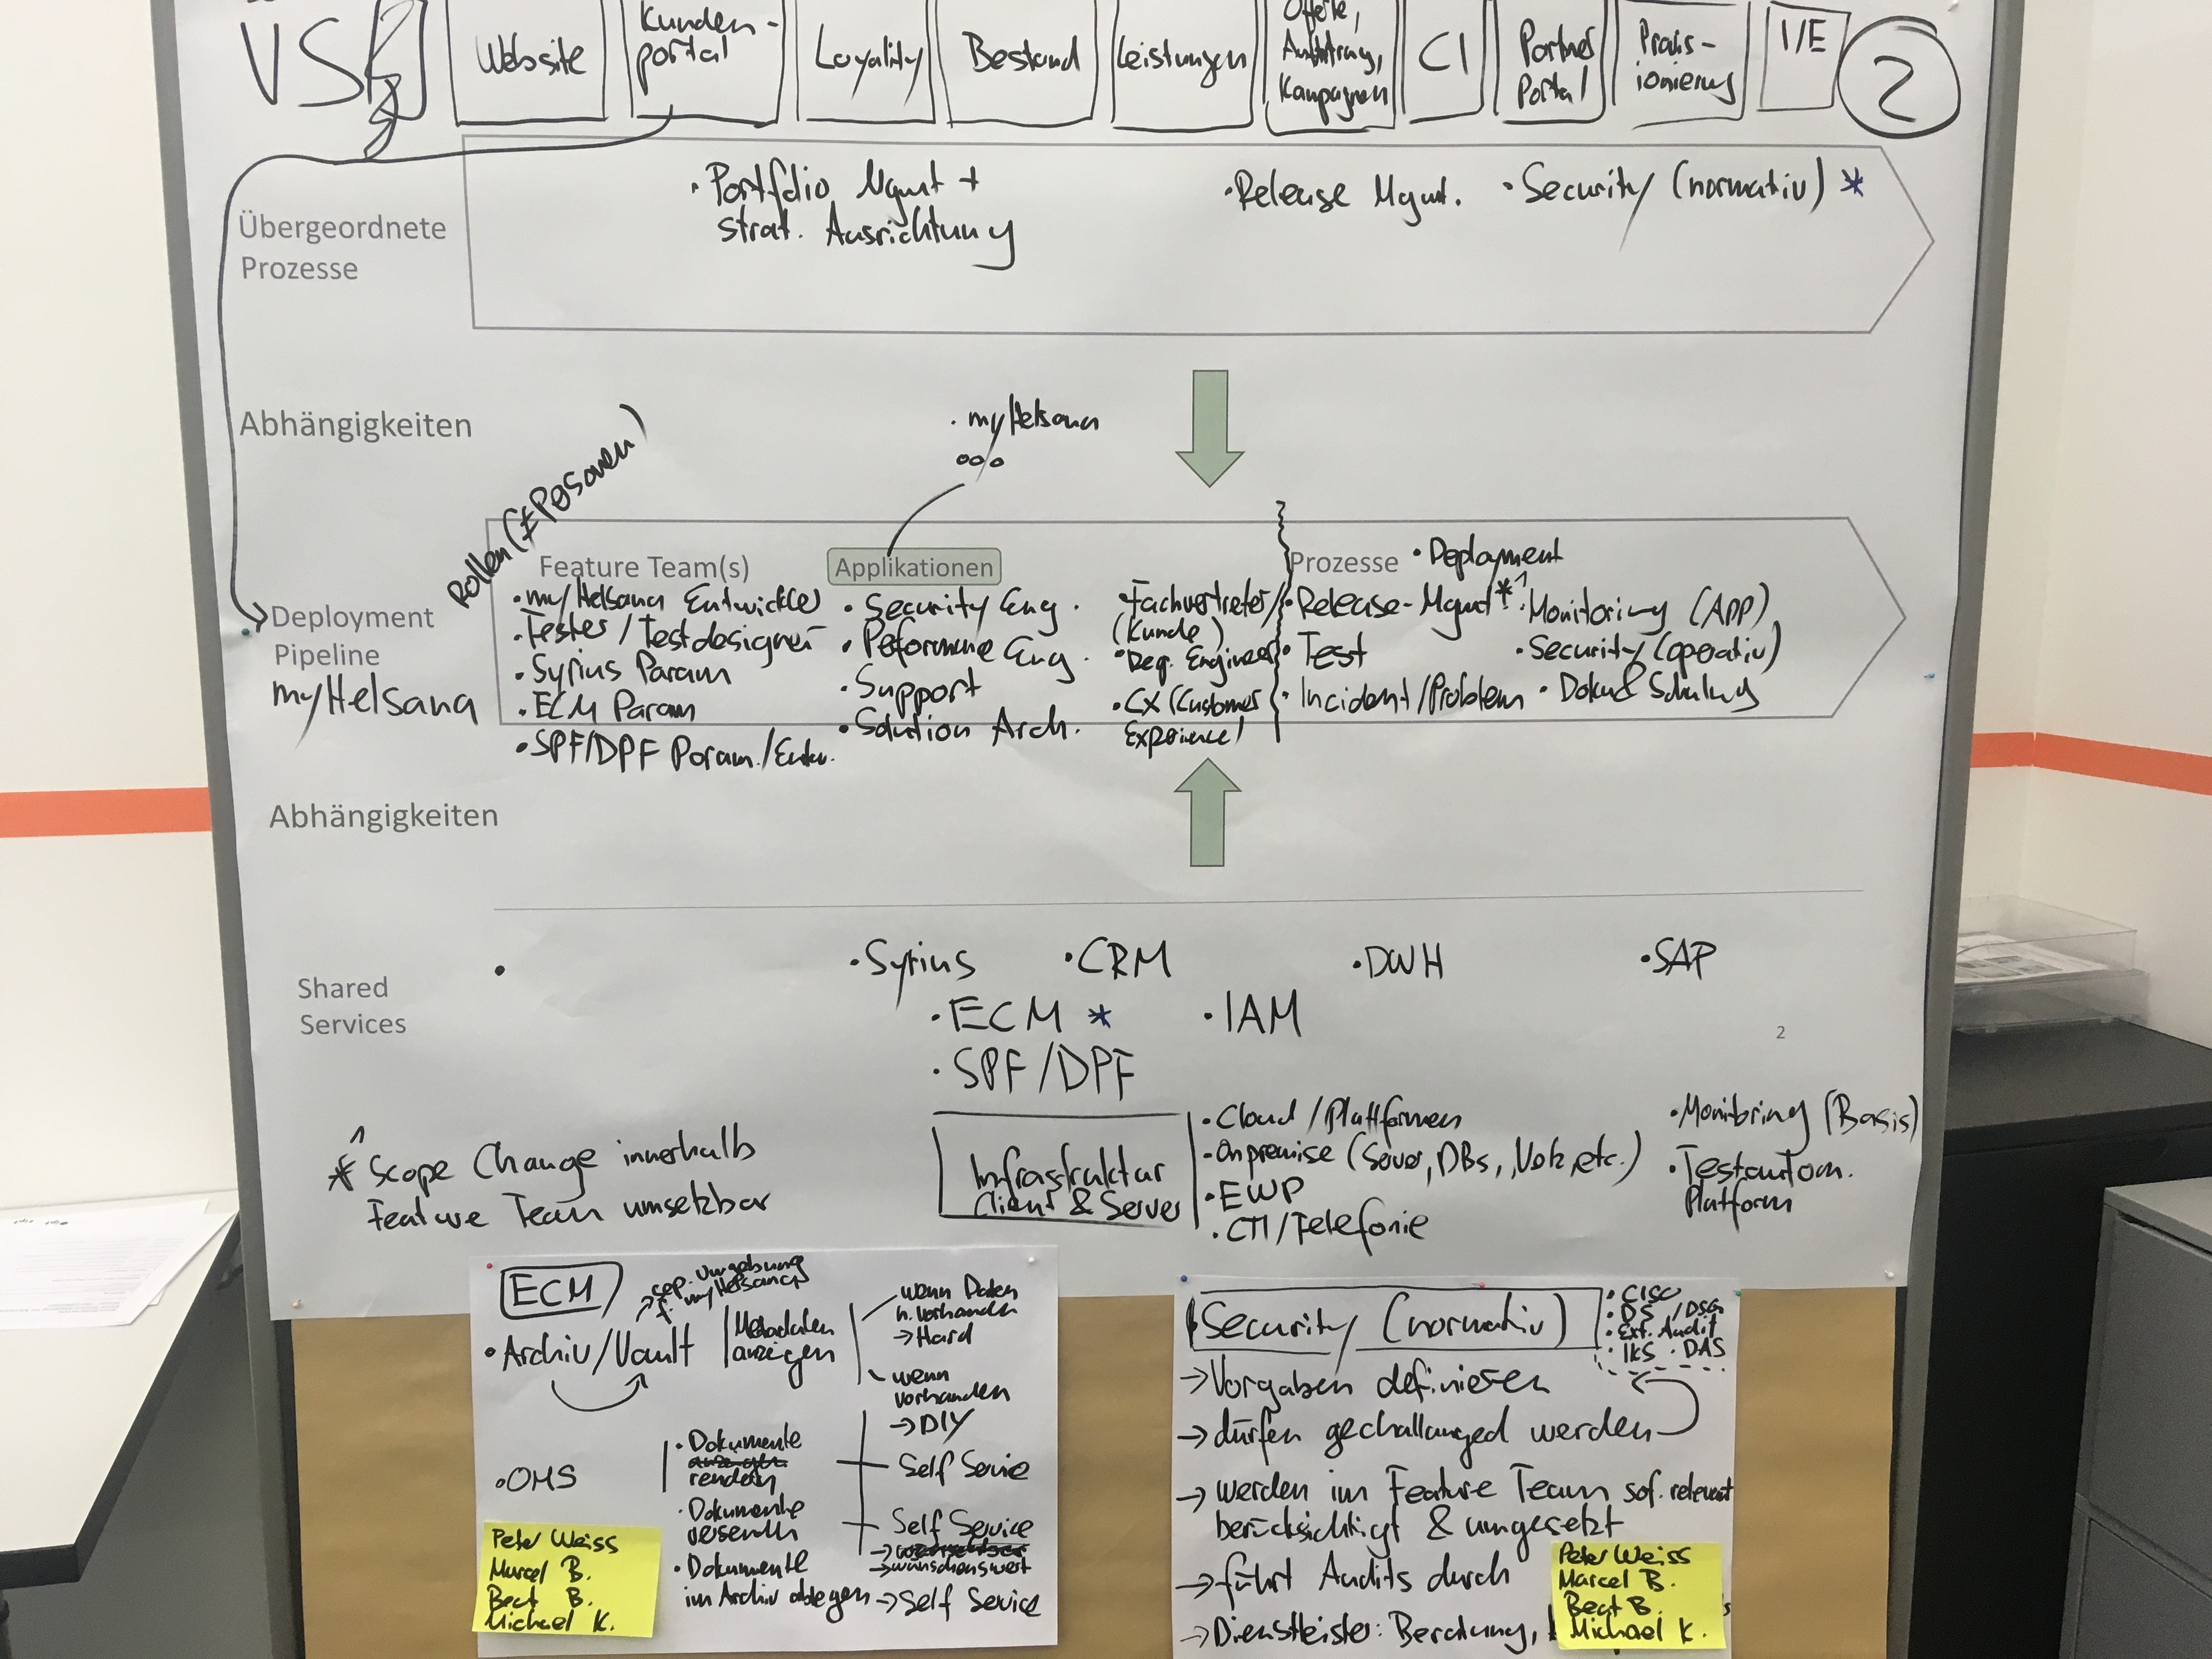 VS
Website
Kunden-
portal
Loyality
Bestand
Leistungen
Offerte,
Kampagnen
CI
Partner
Portal
Provis-
ionierung
I/E
2
Übergeordnete
Prozesse
• Portfolio Mgmt +
strat. Ausrichtung
• Release Mgmt.
• Security (normativ) *
Abhängigkeiten
• myHelsana
ooo
Rollen (≠Personen)
Deployment
Pipeline
myHelsana
Feature Team(s)
• myHelsana Entwickler
• Tester / Testdesigner
• Syrius Param
• ECM Param
• SPF/DPF Param./Entw.
Applikationen
• Security Eng.
• Performance Eng.
• Support
• Solution Arch.
• Fachvertreter/
(Kunde)
• Req. Engineer
• CX (Customer
Experience)
Prozesse
• Deployment
• Release-Mgmt *
• Test
• Incident/Problem
• Monitoring (APP)
• Security (operativ)
• Doku & Schulung
Abhängigkeiten
Shared
Services
•
• Syrius
• CRM
• DWH
• SAP
• ECM *
• IAM
• SPF/DPF
2
* Scope Change innerhalb
Feature Team umsetzbar
Infrastruktur
Client & Server
• Cloud/Plattformen
• Onpremise (Server, DBs, etc.)
• EWP
• CTI/Telefonie
• Monitoring (Basis)
• Testautom.
Platform
ECM
→ sep. Umgebung
f. myHelsana
• Archiv/Vault
Metadaten
anzeigen
wenn Daten
n. vorhanden
→ Hard
wenn
vorhanden
→ DIY
• OMS
• Dokumente
rendern
Self Service
• Dokumente
versenden
Self Service
→ wünschenswert
• Dokumente
im Archiv ablegen → Self Service
Peter Weiss
Marcel B.
Beat B.
Michael K.
Security (normativ)
• CISO
• DS /DSG
• Ext. Audit
• IKS • DAS
→ Vorgaben definieren
→ dürfen gechallanged werden
→ werden im Feature Team sof. relevant
berücksichtigt & umgesetzt
→ führt Audits durch
→ Dienstleister: Beratung,
Peter Weiss
Marcel B.
Beat B.
Michael K.